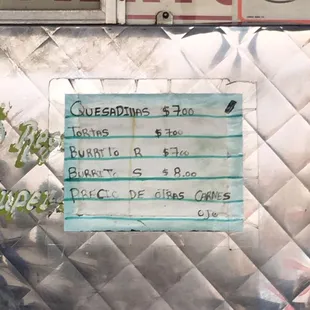 QUESADINAS $7.00
TORTAS $7.00
BURRITO R $7.00
BURRITO S $8.00
PRECIO DE OTRAS CARNES
OJO